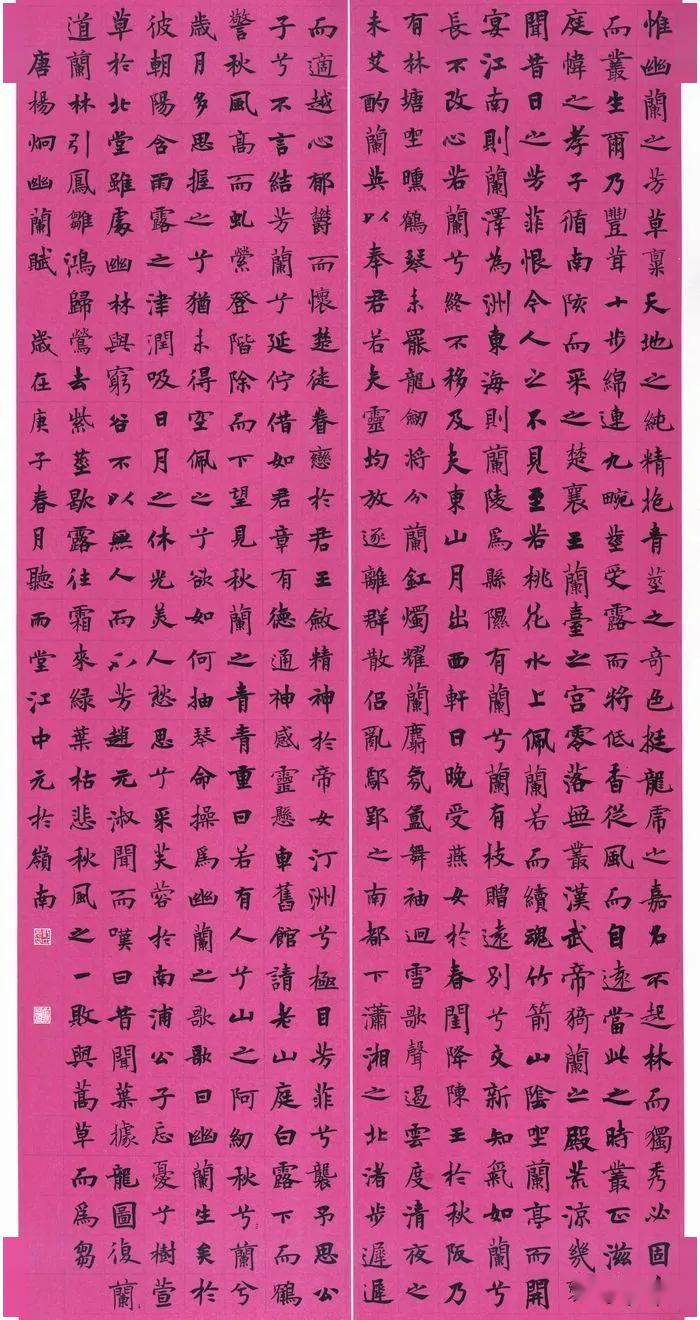 惟幽蘭之芳草稟天地之純精抱青莖之奇色挺龍虎之嘉名不起林而獨秀必固
而叢生爾乃豐茸十步綿連九畹莖受露而將低香從風而自遠當此之時叢正滋
庭幃之孝子循南陔而采之楚襄王蘭臺之宮零落無叢漢武帝猗蘭之殿荒涼幾
聞昔日之芳菲恨今人之不見至若桃花水上佩蘭若而續魂竹箭山陰坐蘭亭而開
宴江南則蘭澤為洲東海則蘭陵爲縣隰有蘭兮蘭有枝贈遠別兮交新知氣如蘭兮
長不改心若蘭兮終不移及夫東山月出西軒日晚受燕女於春閨降陳王於秋阪乃
有林塘坐曛鶴琴未罷龍劒將分蘭釭燭耀蘭麝氛氳舞袖迴雪歌聲遏雲度清夜之
未艾酌蘭英以奉君若夫靈均放逐離群散侶亂鄢郢之南都下瀟湘之北渚步遲遲
而適越心郁鬱而懷楚徒眷戀於君王斂精神於帝女汀洲兮極目芳菲兮襲予思公
子兮不言結芳蘭兮延佇借如君章有德通神感靈懸車舊館請老山庭白露下而鶴
警秋風高而虬縈登階除而下望見秋蘭之青青重曰若有人兮山之阿紉秋兮蘭兮
歲月多思握之兮猶未得空佩之兮欲如何抽琴命操爲幽蘭之歌歌曰幽蘭生矣於
彼朝陽含雨露之津潤吸日月之休光美人愁思兮采芙蓉於南浦公子忘憂兮樹萱
草於北堂雖處幽林與窮谷不以無人而不芳趙元淑聞而嘆曰昔聞葉據龍圖復蘭
道蘭林引鳳雛鴻歸鶯去紫莖歇露往霜來綠葉枯悲秋風之一敗與蒿草而爲芻
唐楊炯幽蘭賦 歲在庚子春月聽雨堂江中元於嶺南